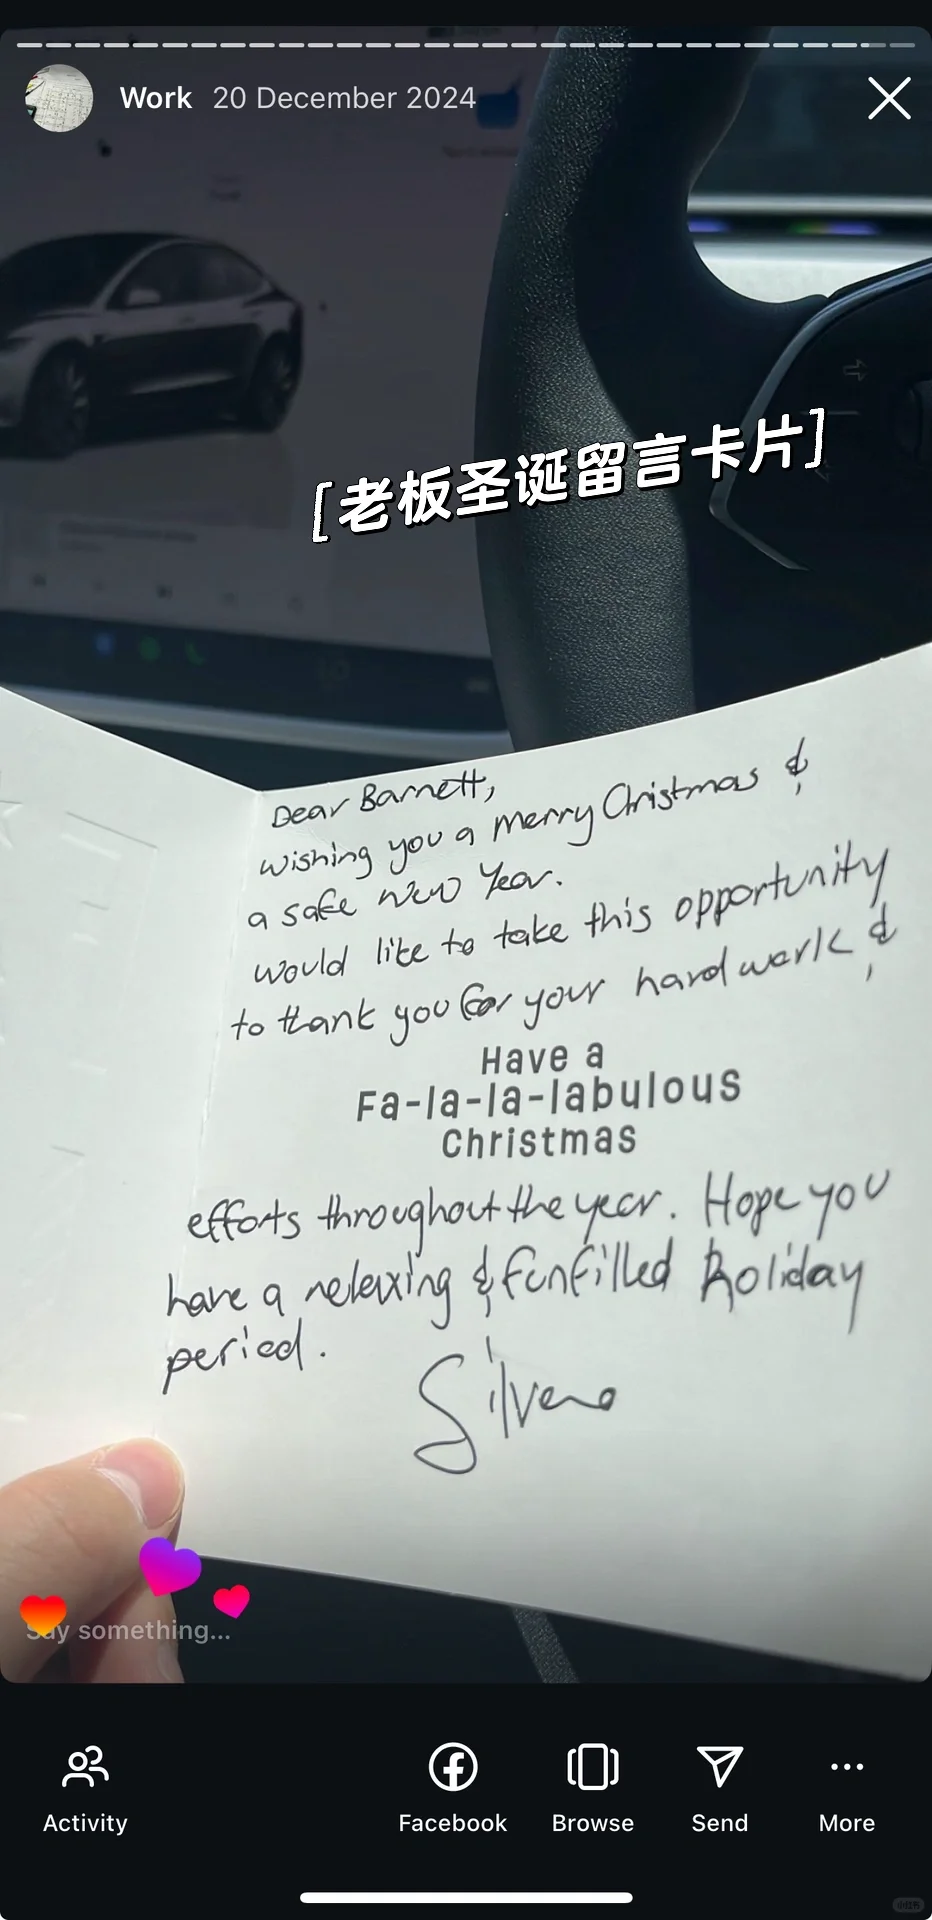 Work 20 December 2024
[老板圣诞留言卡片]
Dear Barnett,
wishing you a merry Christmas &
a safe New Year.
would like to take this opportunity
to thank you for your hard work &
Have a
Fa-la-la-labulous
Christmas
efforts throughout the year. Hope you
have a relaxing & funfilled holiday
period.
Silvena
Say something...
Activity
Facebook
Browse
Send
More
小红书